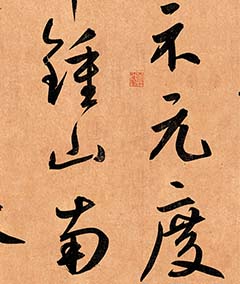 示元度
鍾山南